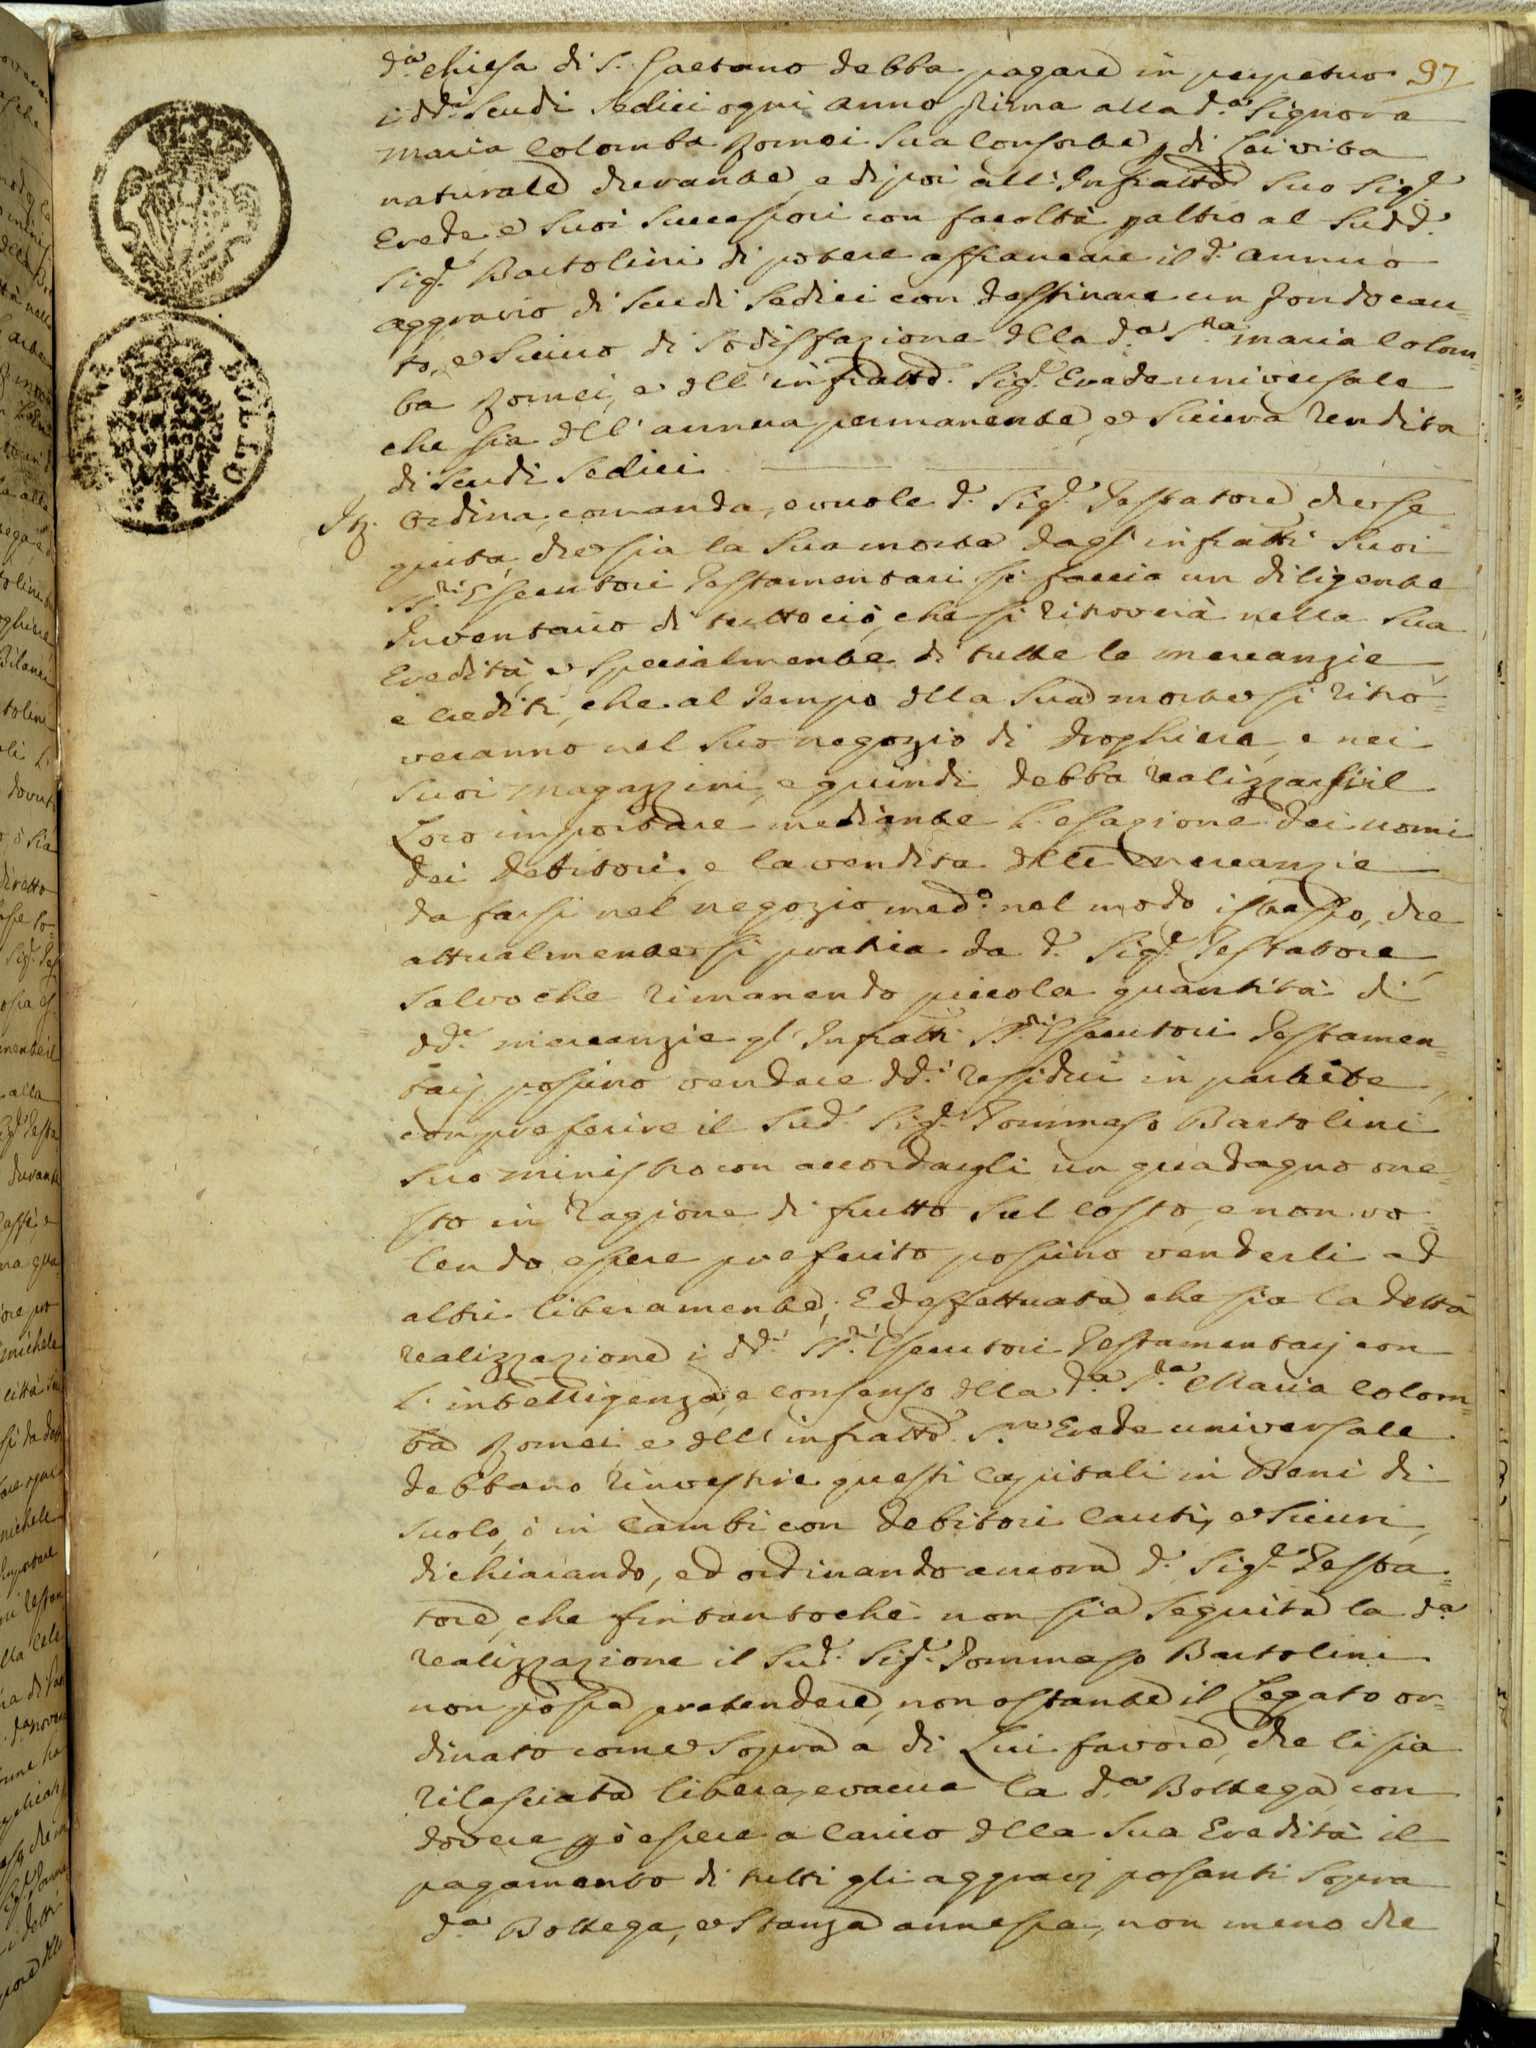 97
d.ª chiesa di S. Gaetano debba pagare in perpetuo
i dd.i Scudi Sedici ogni anno prima alla d.ª Signora
Maria Colomba Zomei Sua Consorte, di Lei vita
naturale durante, e dipoi all' Infratto Suo Sig.r
Erede, e Suoi Successori con facoltà p altro al Sudd.o
Sig.r Bartolini di potere affrancare il d.o annuo
aggravio di Scudi Sedici con destinare un fondo cau=
to, e Sicuro di Sodisfazione della d.ª S.ra Maria Colom=
ba Zomei, e dell' infratto Sig.r Erede universale
che sia dell' annua permanente, e Sicura rendita
di Scudi Sedici
Ordina, comanda, e vuole d.o Sig.r Testatore che se
guita, che sia la Sua morte dagl' infratti Suoi
SS.ri Esecutori Testamentari si faccia un diligente
Inventario di tutto ciò, che si ritroverà nella Sua
Eredità, e specialmente di tutte le mercanzie,
e crediti, che al tempo della Sua morte si ritro=
veranno nel Suo negozio di droghiere, e nei
Suoi Magazzini, e quindi debba realizzarsi il
Loro importare mediante l' esazione dei nomi
dei debitori, e la vendita delle mercanzie
da farsi nel negozio med.o nel modo istesso, che
attualmente si pratica da d.o Sig.r Testatore,
Salvo che rimanendo piccola quantità di
dd.e mercanzie gl' Infratti SS.ri Esecutori Testamen=
tarj possino vendere dd.i residui in partite,
con preferire il Sud.o Sig.r Tommaso Bartolini
Suo Ministro con accordargli un guadagno one=
sto in ragione di frutto sul costo, e non vo=
lendo essere preferito possino venderli ad
altri liberamente; Ed effettuata che sia la detta
realizzazione i dd.i SS.ri Esecutori Testamentarj con
l' intelligenza, e consenso della d.ª S.ra Maria Colom=
ba Zomei, e dell' infratto S.re Erede universale
debbano rinvestire questi capitali in Beni di
suolo, ò in Cambi con debitori Cauti, e Sicuri,
dichiarando, ed ordinando ancora d.o Sig.r Testa=
tore, che fintantoche non sia seguita la d.ª
realizzazione il Sud.o Sig.r Tommaso Bartolini
non possa pretendere, non ostante il Legato or=
dinato come Sopra a di Lui favore, che li sia
rilasciata libera, e vacua la d.ª Bottega, con
dovere pò essere a carico della Sua Eredità il
pagamento di tutti gli aggravj posanti sopra
d.ª Bottega, e Stanza annessa, non meno che
BOLLO